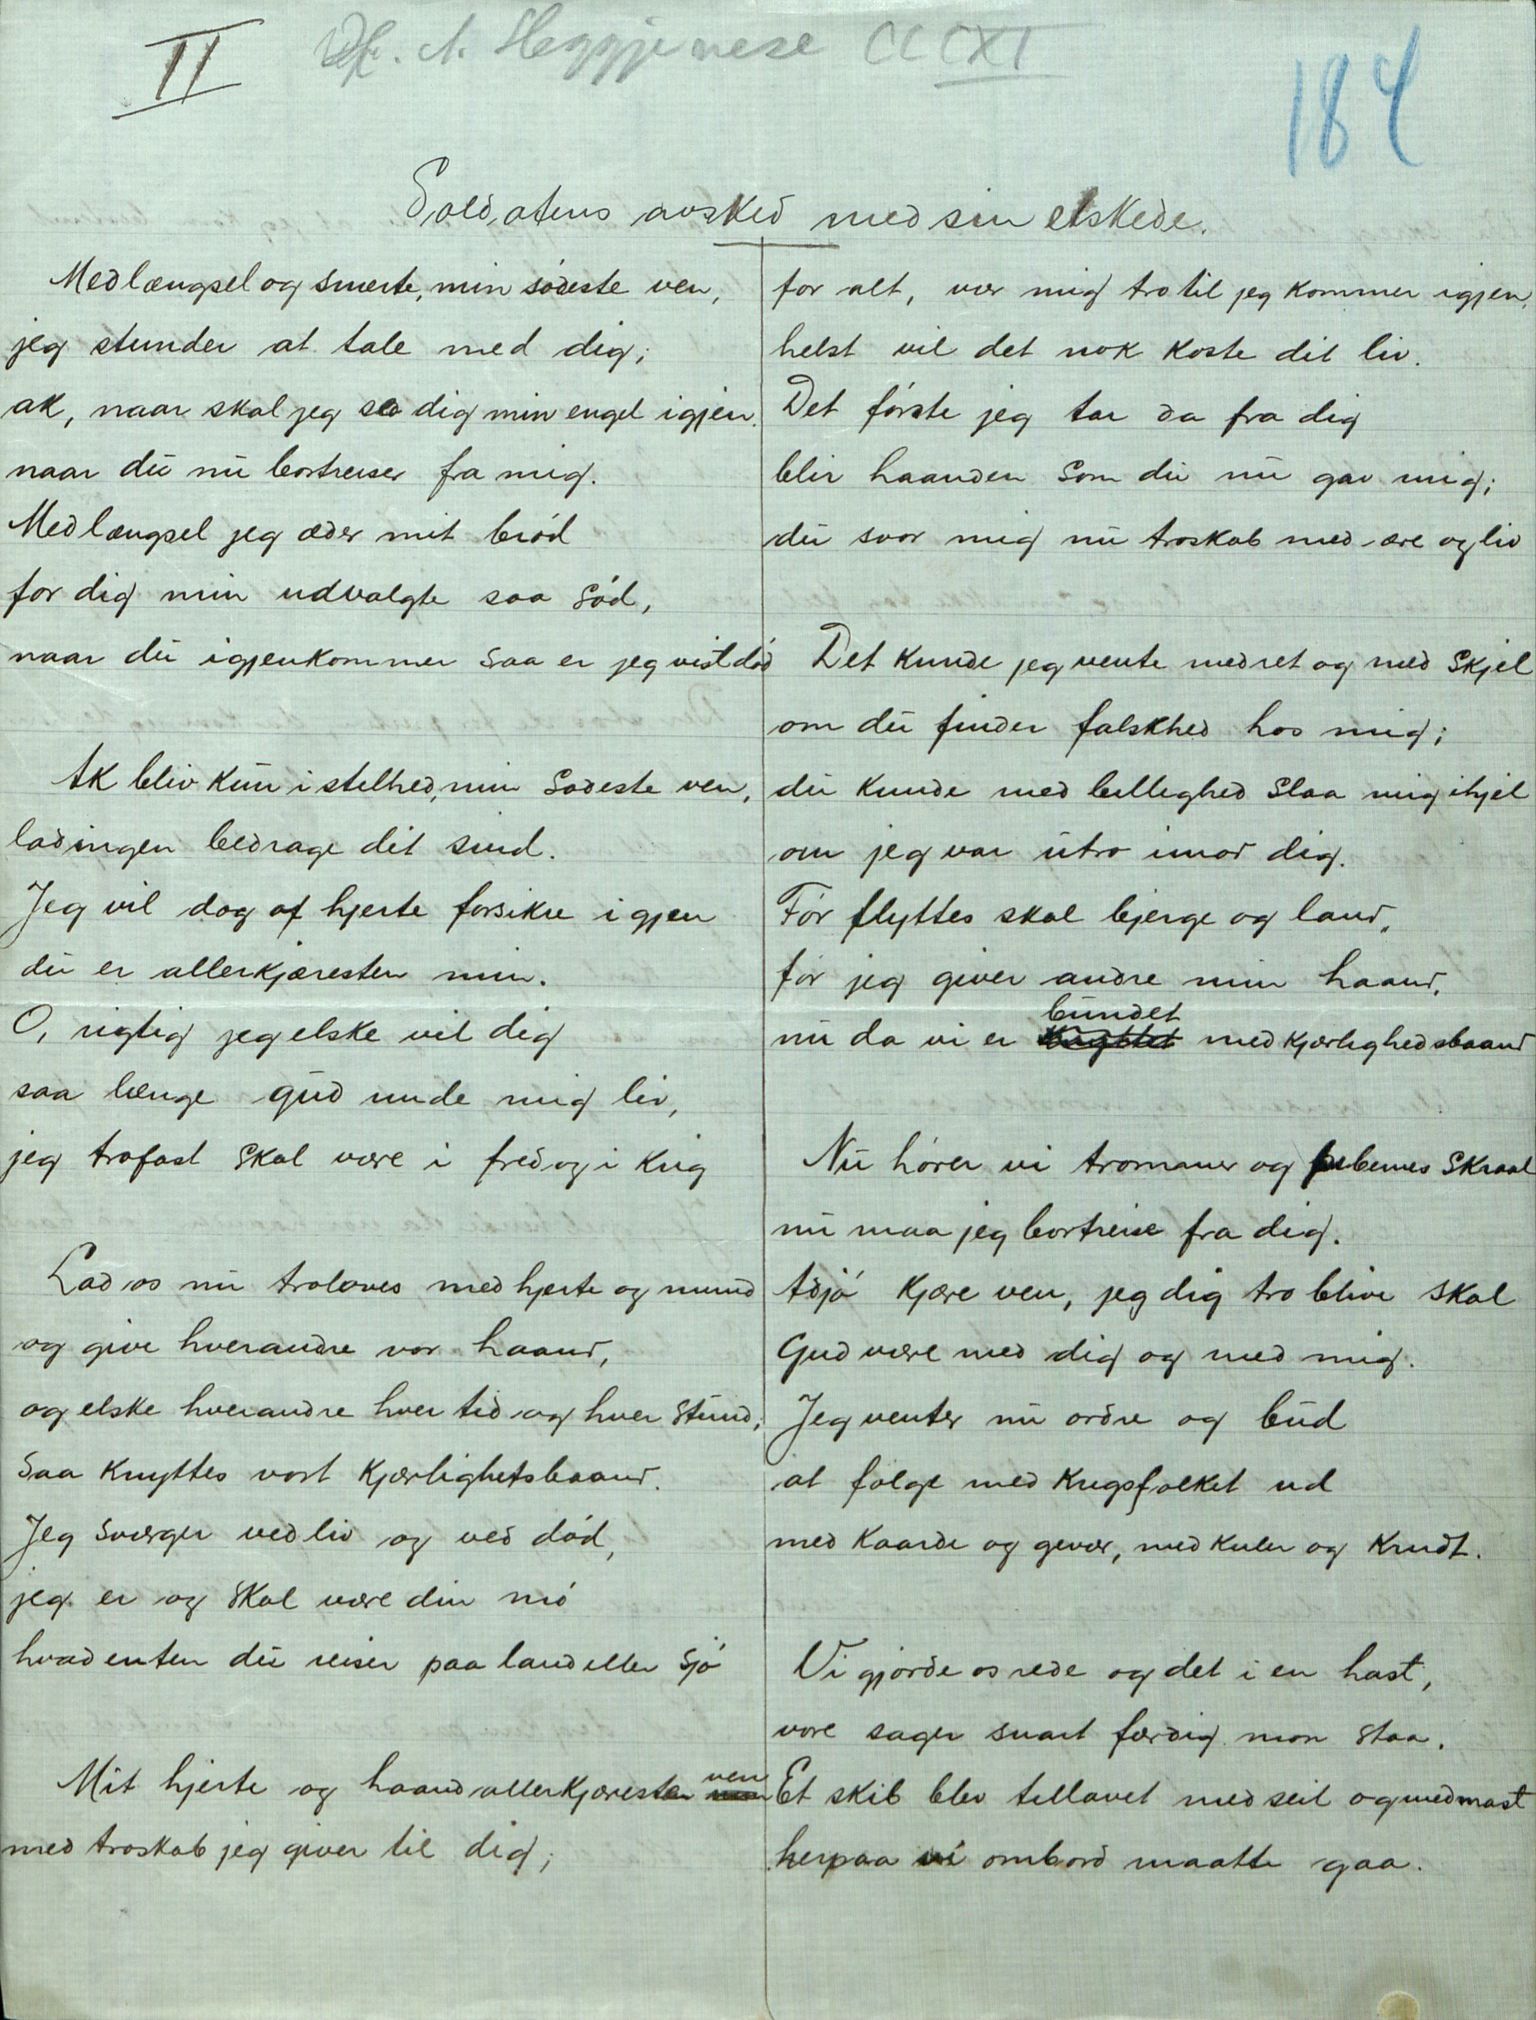 II
A. Heggjenese CCCXI
184
Soldatens avsked med sin elskede.
Med længsel og smerte, min södeste ven,
jeg stunder at tale med dig;
ak, naar skal jeg se dig min engel igjen.
naar du nu bortreiser fra mig.
Med længsel jeg æder mit bröd
for dig min udvalgte saa söd,
naar du igjenkommer saa er jeg vist död
Ak bliv kun i stelhed, min sødeste ven,
lad ingen bedrage dit sind.
Jeg vil dog af hjerte forsikre igjen
du er allerkjæresten min.
O, rigtig jeg elske vil dig
saa længe gud unde mig liv,
jeg trofast skal være i fred og i krig
Lad os nu troloves med hjerte og mund
og give hverandre vor haand,
og elske hverandre hver tid og hver stund,
saa knyttes vort kjærlighetsbaand.
Jeg sværger ved liv og ved död,
jeg er og skal være din mö
hvad enten du reiser paa land eller sjö
Mit hjerte og haand allerkjæresten ven
med troskab jeg giver til dig;
for alt, vær mig tro til jeg kommer igjen,
helst vil det nok koste dit liv.
Det förste jeg tar da fra dig
blir haanden som du nu gav mig;
du svor mig nu troskab med ære og liv
Det kunde jeg vente med ret og med skjel
om du finder falskhed hos mig;
du kunde med billighed slaa mig ihjel
om jeg var utro imod dig.
Før flyttes skal bjerge og land,
för jeg giver andre min haand,
nu da vi er bundet med kjærlighedsbaand
Nu hörer vi trommer og pibernes skraal
nu maa jeg bortreise fra dig.
Adjö kjære ven, jeg dig tro blive skal
Gud være med dig og med mig.
Jeg venter nu ordre og bud
at følge med krigsfolket ud
med kaarde og gevær, med kuler og krudt.
Vi gjorde os rede og det i en hast,
vore sager snart færdig mon staa.
Et skib blev tillavet med seil og med mast
herpaa vi ombord maatte gaa.